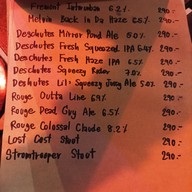 Fremont Interurban 6.2% 290.-
Melvin Back In Da Haze 6.5% 290.-
Deschutes Mirror Pond Ale 5.0% 290.-
Deschutes Fresh Squeezed IPA 6.4% 290.-
Deschutes Fresh Haze IPA 6.5% 290.-
Deschutes Squeezy Rider 7.0% 290.-
Deschutes Lil' Squeezy Juicy Ale 5.0% 290.-
Rouge Outta Line 6.9% 290.-
Rouge Dead Guy Ale 6.5% 290.-
Rouge Colossal Claude 8.2% 290.-
Lost Cost Stout 290.-
Stromtrooper Stout 290.-